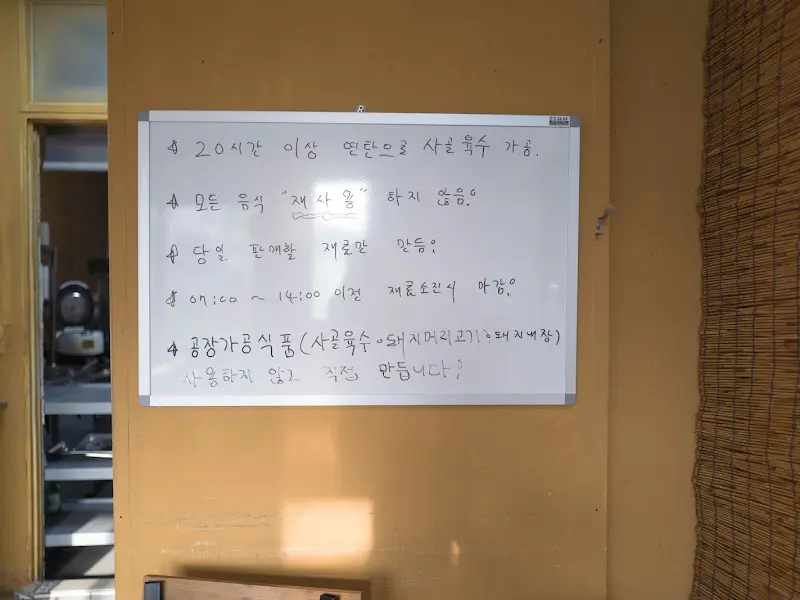 20시간 이상 연탄으로 사골육수 가공.
모든 음식 "재사용" 하지 않음.
당일 판매할 재료만 만듬.
07:00 ~ 14:00 이전 재료소진시 마감.
공장가공식품(사골육수.돼지머리고기.돼지내장)
사용하지 않고 직접 만듭니다.